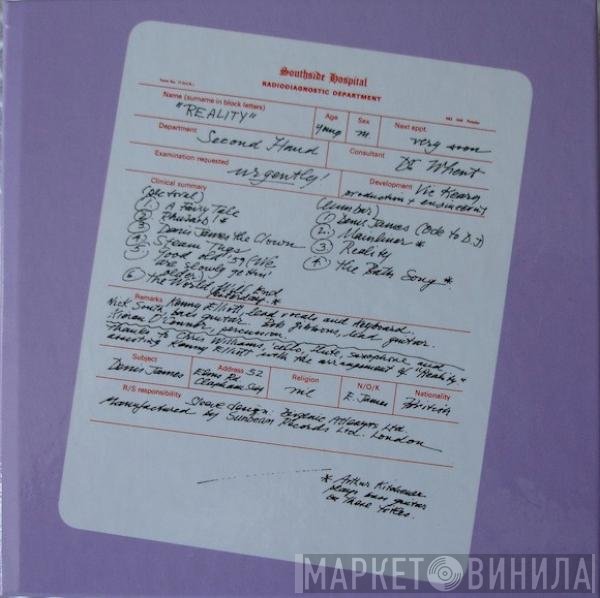 Southside Hospital
RADIODIAGNOSTIC DEPARTMENT
Name (surname in block letters)
"REALITY"
Age
young
Sex
m
Next appt.
very soon
Department
Second Hand
Consultant
Dr Whent
Examination requested
urgently!
Development
Vic Keary
production + engineering
Clinical summary
(pectoral)
(1) A Fairy Tale
(2) Rhubarb! *
(3) Denis James the Clown
(4) Steam Tugs
(5) Good old '59 (We
are slowly gettin'
older)
(6) The World Will End
Yesterday. *
(lumbar)
(1) Denis James (Ode to D.J)
(2) Mainliner *
(3) Reality
(4) The Bath Song *
Remarks
Kenny Elliott, lead vocals and keyboard.
Nick South, bass guitar. Bob Gibbons, lead guitar.
Kieran O'Connor, percussion.
Thanks to Chris Williams, 'cello, flute, saxophone and
assisting Kenny Elliott with the arrangement of "Reality"
Subject
Denis James
Address 52
Elms Rd.
Clapham Sq
Religion
nil
N/O/K
E. James
Nationality
British
R/S responsibility
Sleeve design: Artpartz Ltd.
Manufactured by Sunbeam Records Ltd. London
* Arthur Kitchener
plays bass guitar
on these titles.
МАРКЕТ ВИНИЛА